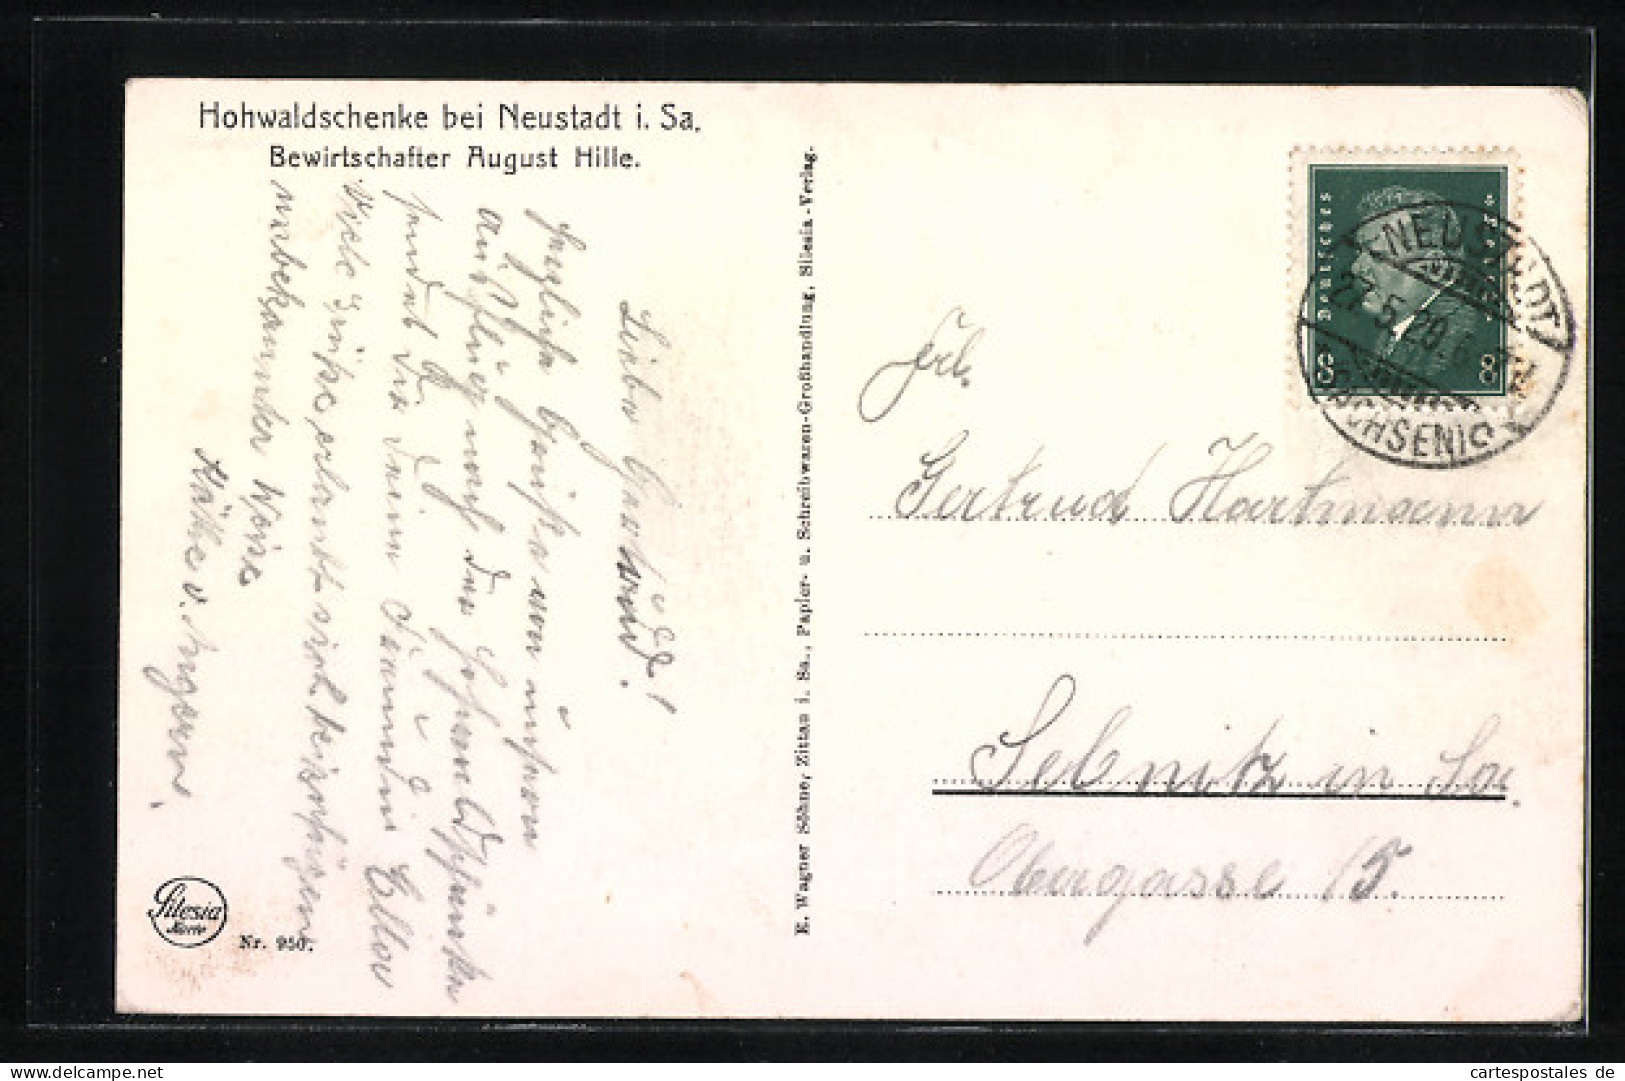 Hohwaldschenke bei Neustadt i. Sa.
Bewirtschafter August Hille.
Liebe Gertrud!
Herzliche Grüße von unserm
Ausflug nach der Hohwaldschänke
sendet Dir Deine Freundin Ella
Viele Grüße, erlaubt sich
unbekannter Weise
Käthe v.
Silesia
Karte
Nr. 950.
E. Wagner Söhne, Zittau i. Sa., Papier- u. Schreibwaren-Großhandlung, Silesia-Verlag.
Deutsches Reich
8 8
NEUSTADT
27.5.29.6
SACHSEN
Frl.
Gertrud Hartmann
Sebnitz in Sa.
Obergasse 15.
cartespostales.de